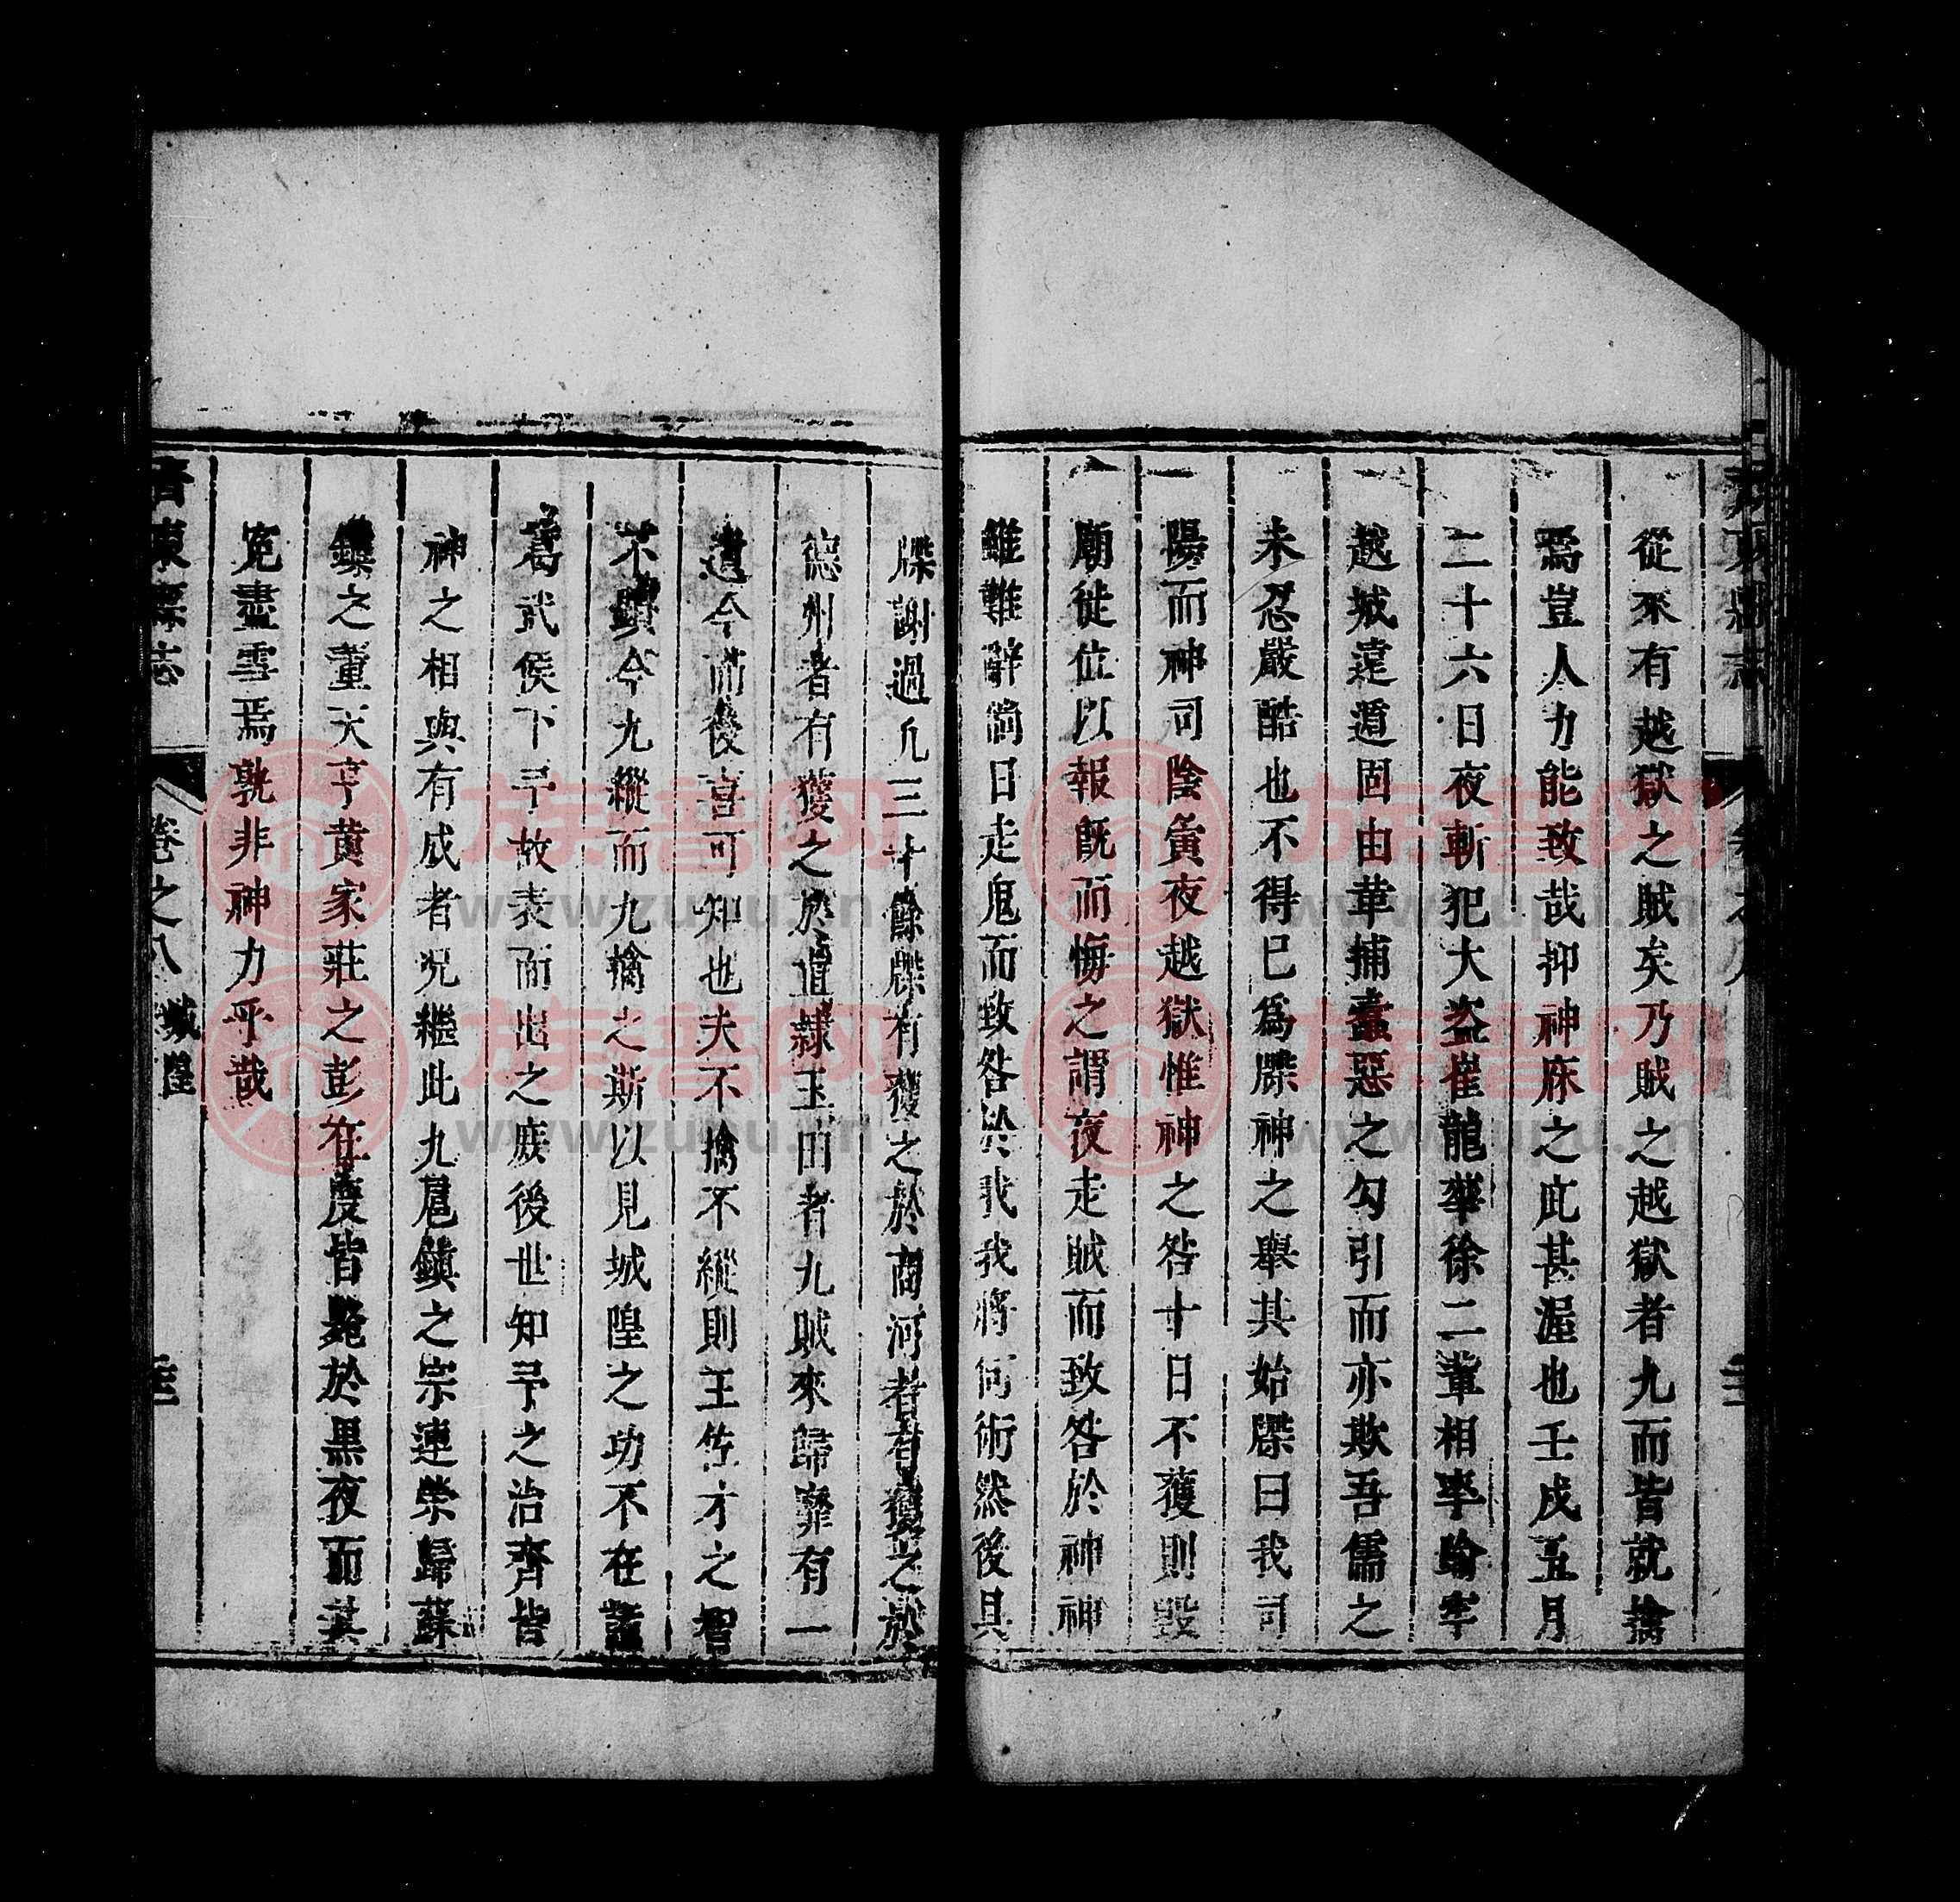 從來有越獄之賊矣乃賊之越獄者九而皆就擒
焉豈人力能致哉抑神庥之庇甚渥也壬戌五月
二十六日夜斬犯大盜崔龍華徐二葷相率踰牢
越城遠遁固由革捕蠹惡之勾引而亦欺吾儒之
未忍嚴酷也不得已為牒神之舉其始牒曰我司
陽而神司陰黃夜越獄惟神之咎十日不獲則毀
廟徒位以報旣而悔之謂夜走賊而致咎於神神
雖難辭倘日走鬼而致咎於我我將何術然後具
牒謝過凡三十餘牒有獲之於商河者有獲之於
德州者有獲之於直隸玉田者九賊來歸靡有一
遺今而後喜可知也夫不擒不縱則王佐才之智
不躓今九縱而九擒之斯以見城隍之功不在諸
葛武侯下予故表而出之庶後世知予之治齊皆
神之相與有成者况繼此九扈鎮之宗連榮歸蘇
鎮之董大亨黄家莊之彭在度皆斃於黒夜而其
寃盡雪焉孰非神力乎哉
齊東縣志
卷之八
城隍